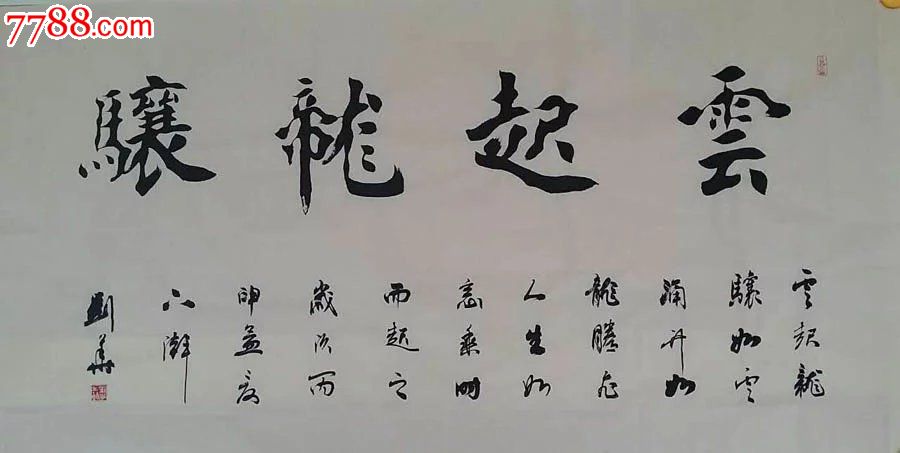 7788.com
雲起龍驤
云起龍
驤如雲
涌升如
龍騰飛
人生如
意乘時
而起之
歲次丙
申孟夏
下澣
刘華